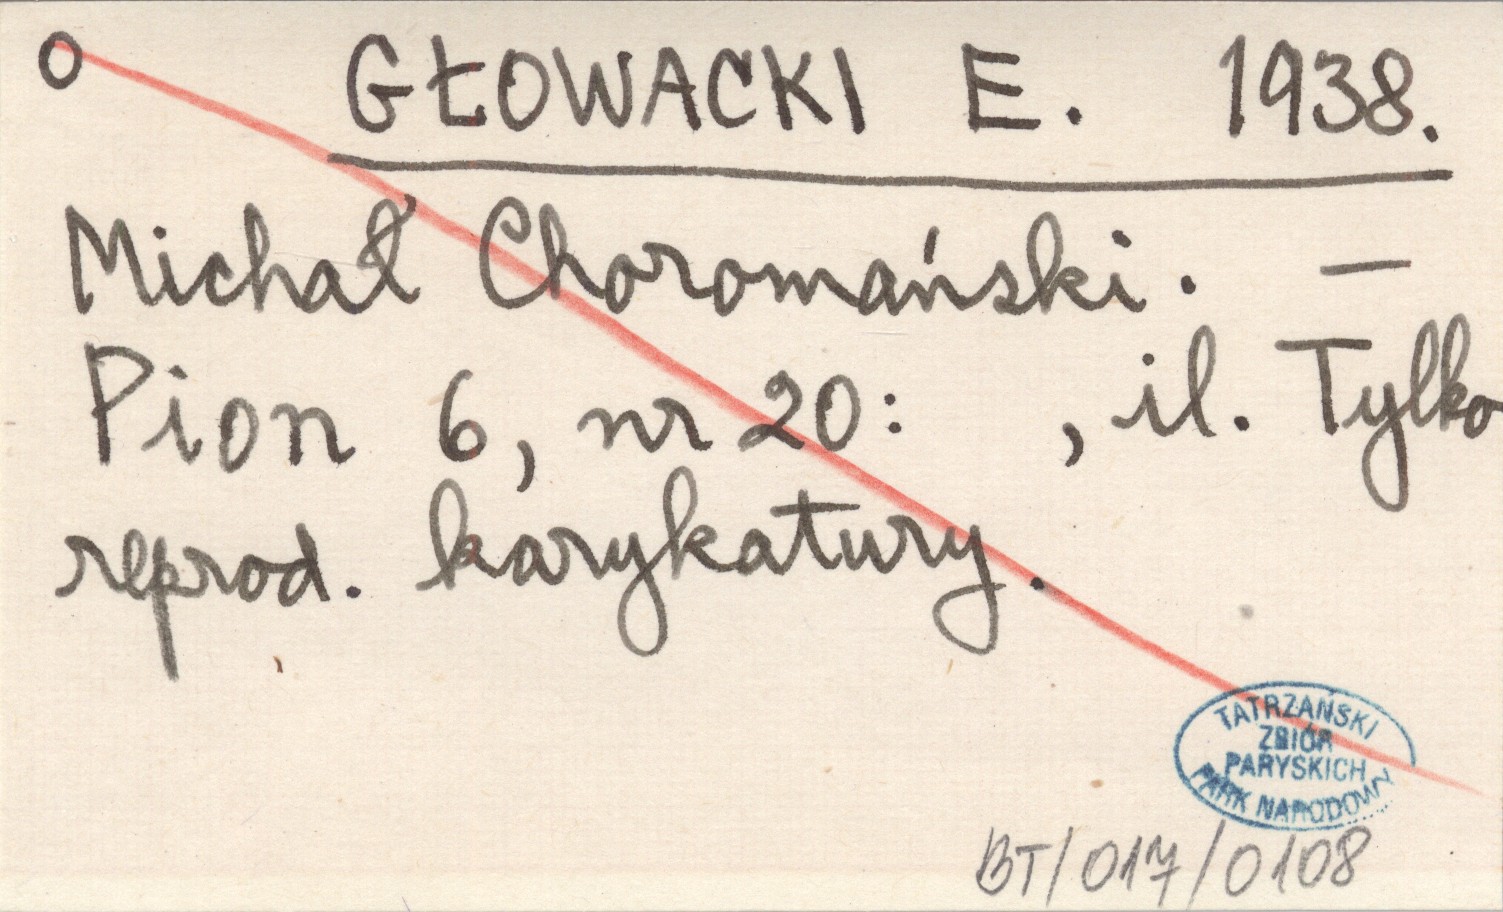 O GŁOWACKI E. 1938.
Michał Choromański. —
Pion 6, nr 20: , il. Tylko
reprod. karykatury.
TATRZAŃSKI
ZBIÓR
PARYSKICH
PARK NARODOWY
BT/017/0108